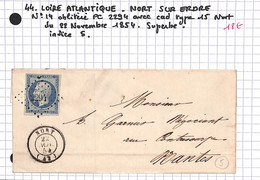 44. LOIRE ATLANTIQUE - NORT SUR ERDRE
N° 14 oblitéré PC 2294 avec cad type 15 Nort
du 28 Novembre 1854. Superbe.
indice 5.
18€
NORT
(42)
Monsieur
A. Garnier Négociant
rue
Nantes